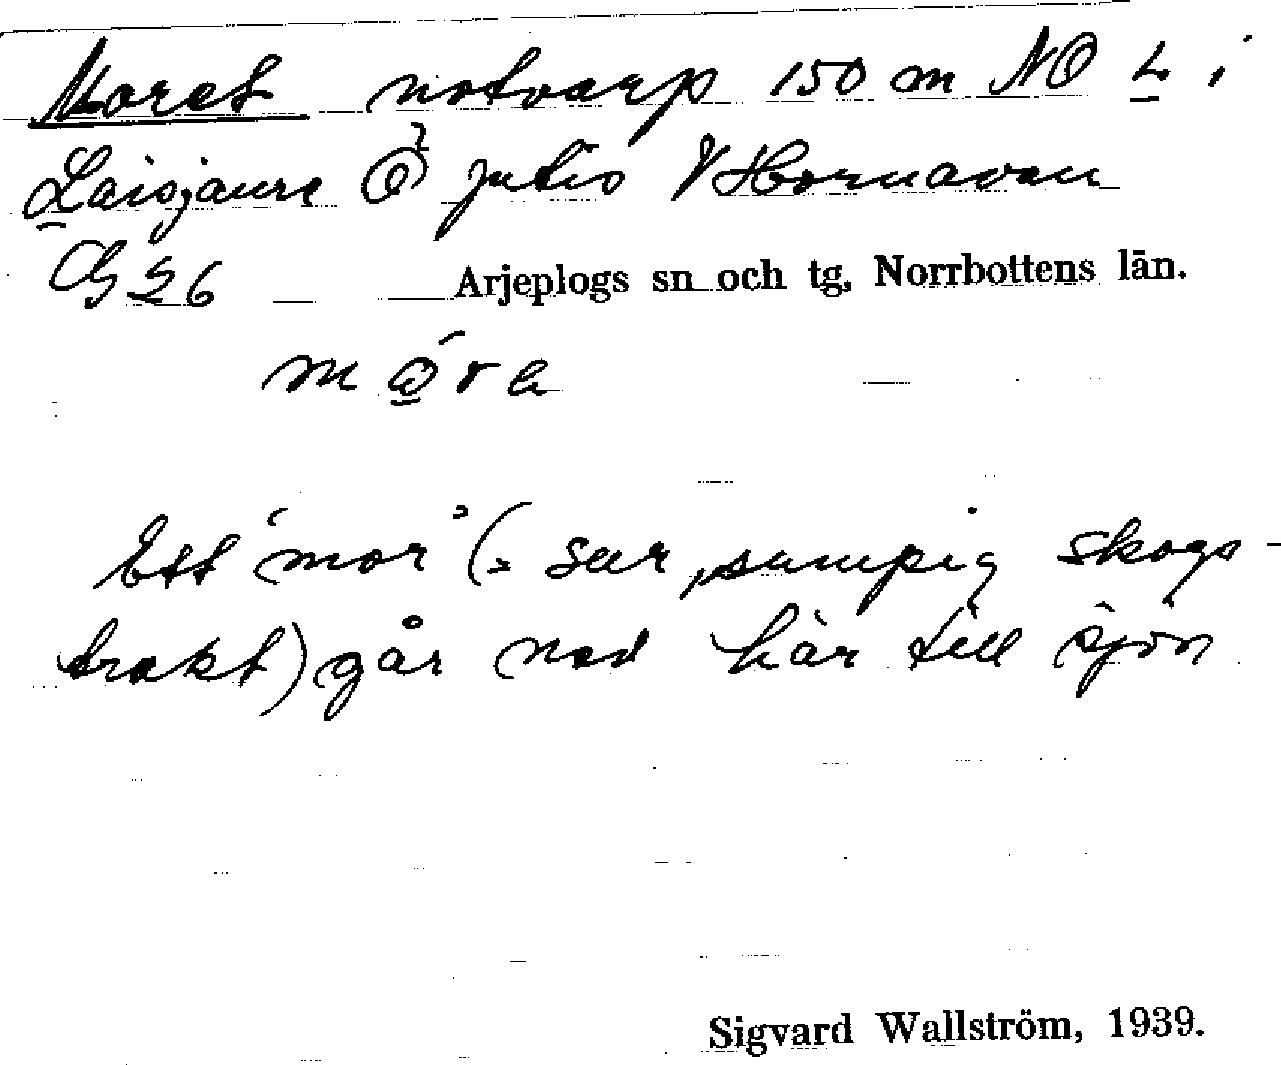 Moret notvarp 150 m NO L i
Laisjaure Ö Jutis V Hornavan
G 26 Arjeplogs sn och tg, Norrbottens län.
Ett 'mor' (= sur, sumpig skogs-
trakt) går ned här till sjön
Sigvard Wallström, 1939.